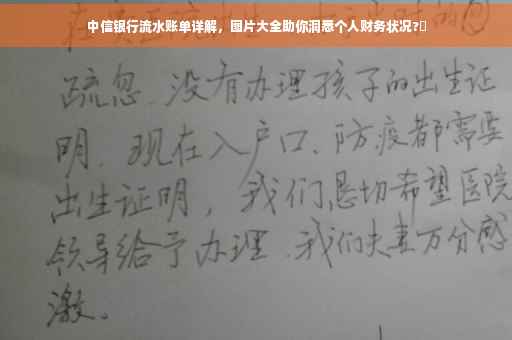 中信银行流水账单详解，图片大全助你洞悉个人财务状况?
疏忽、没有办理孩子的出生证
明、现在入户口、防疫都需要
出生证明，我们恳切希望医院
领导给予办理、我们夫妻万分感
激。